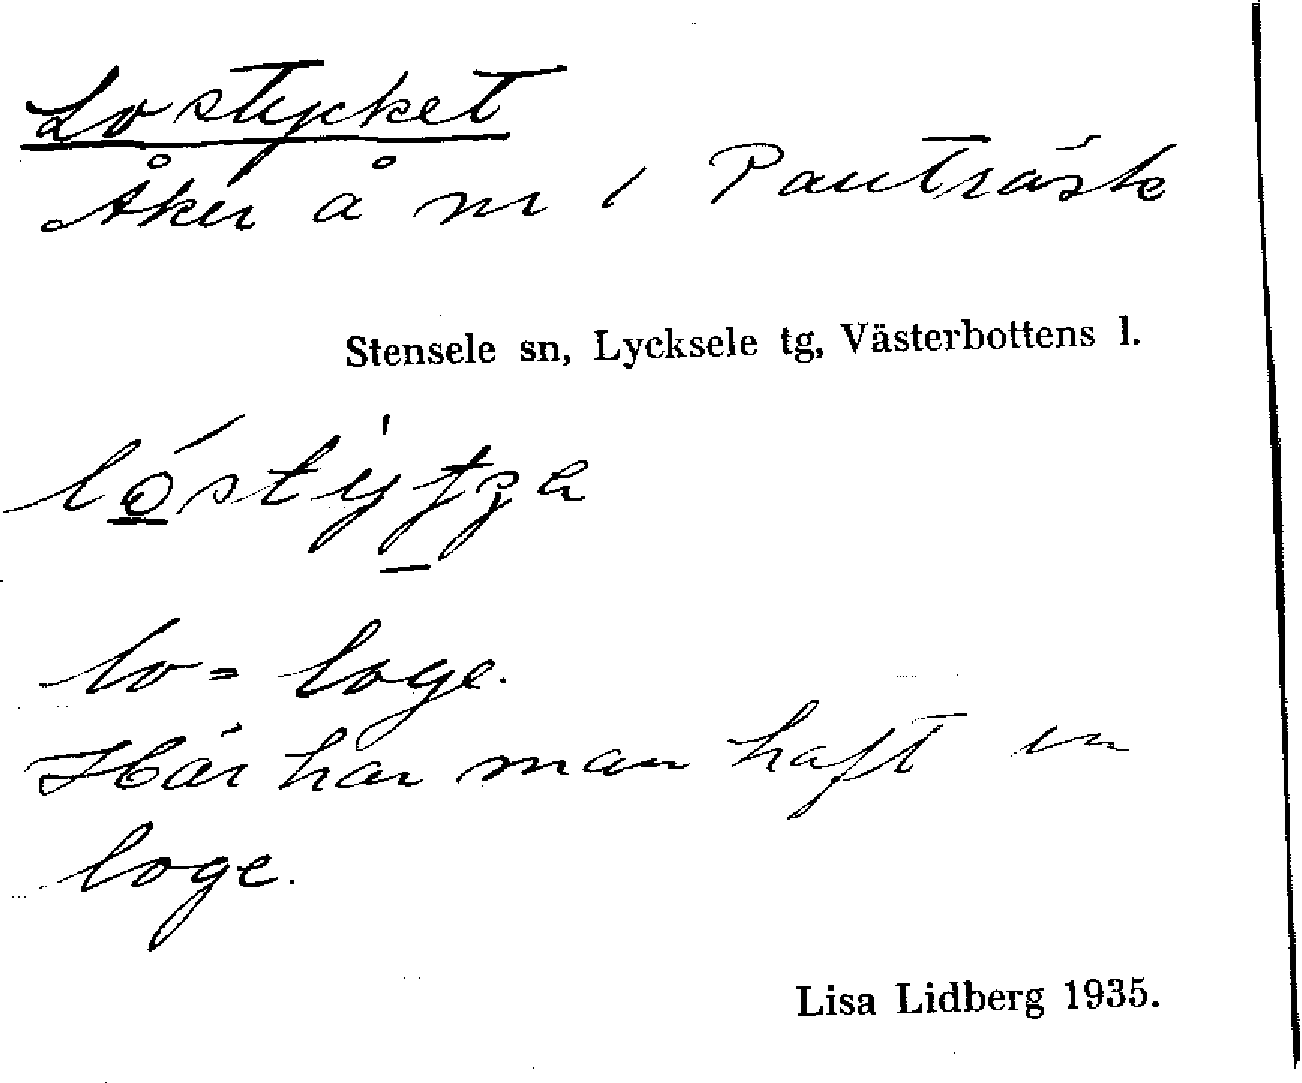 Lostycket
Åker å nr 1 Pauträsk
Stensele sn, Lycksele tg, Västerbottens l.
lo = loge.
Här har man haft en
loge.
Lisa Lidberg 1935.